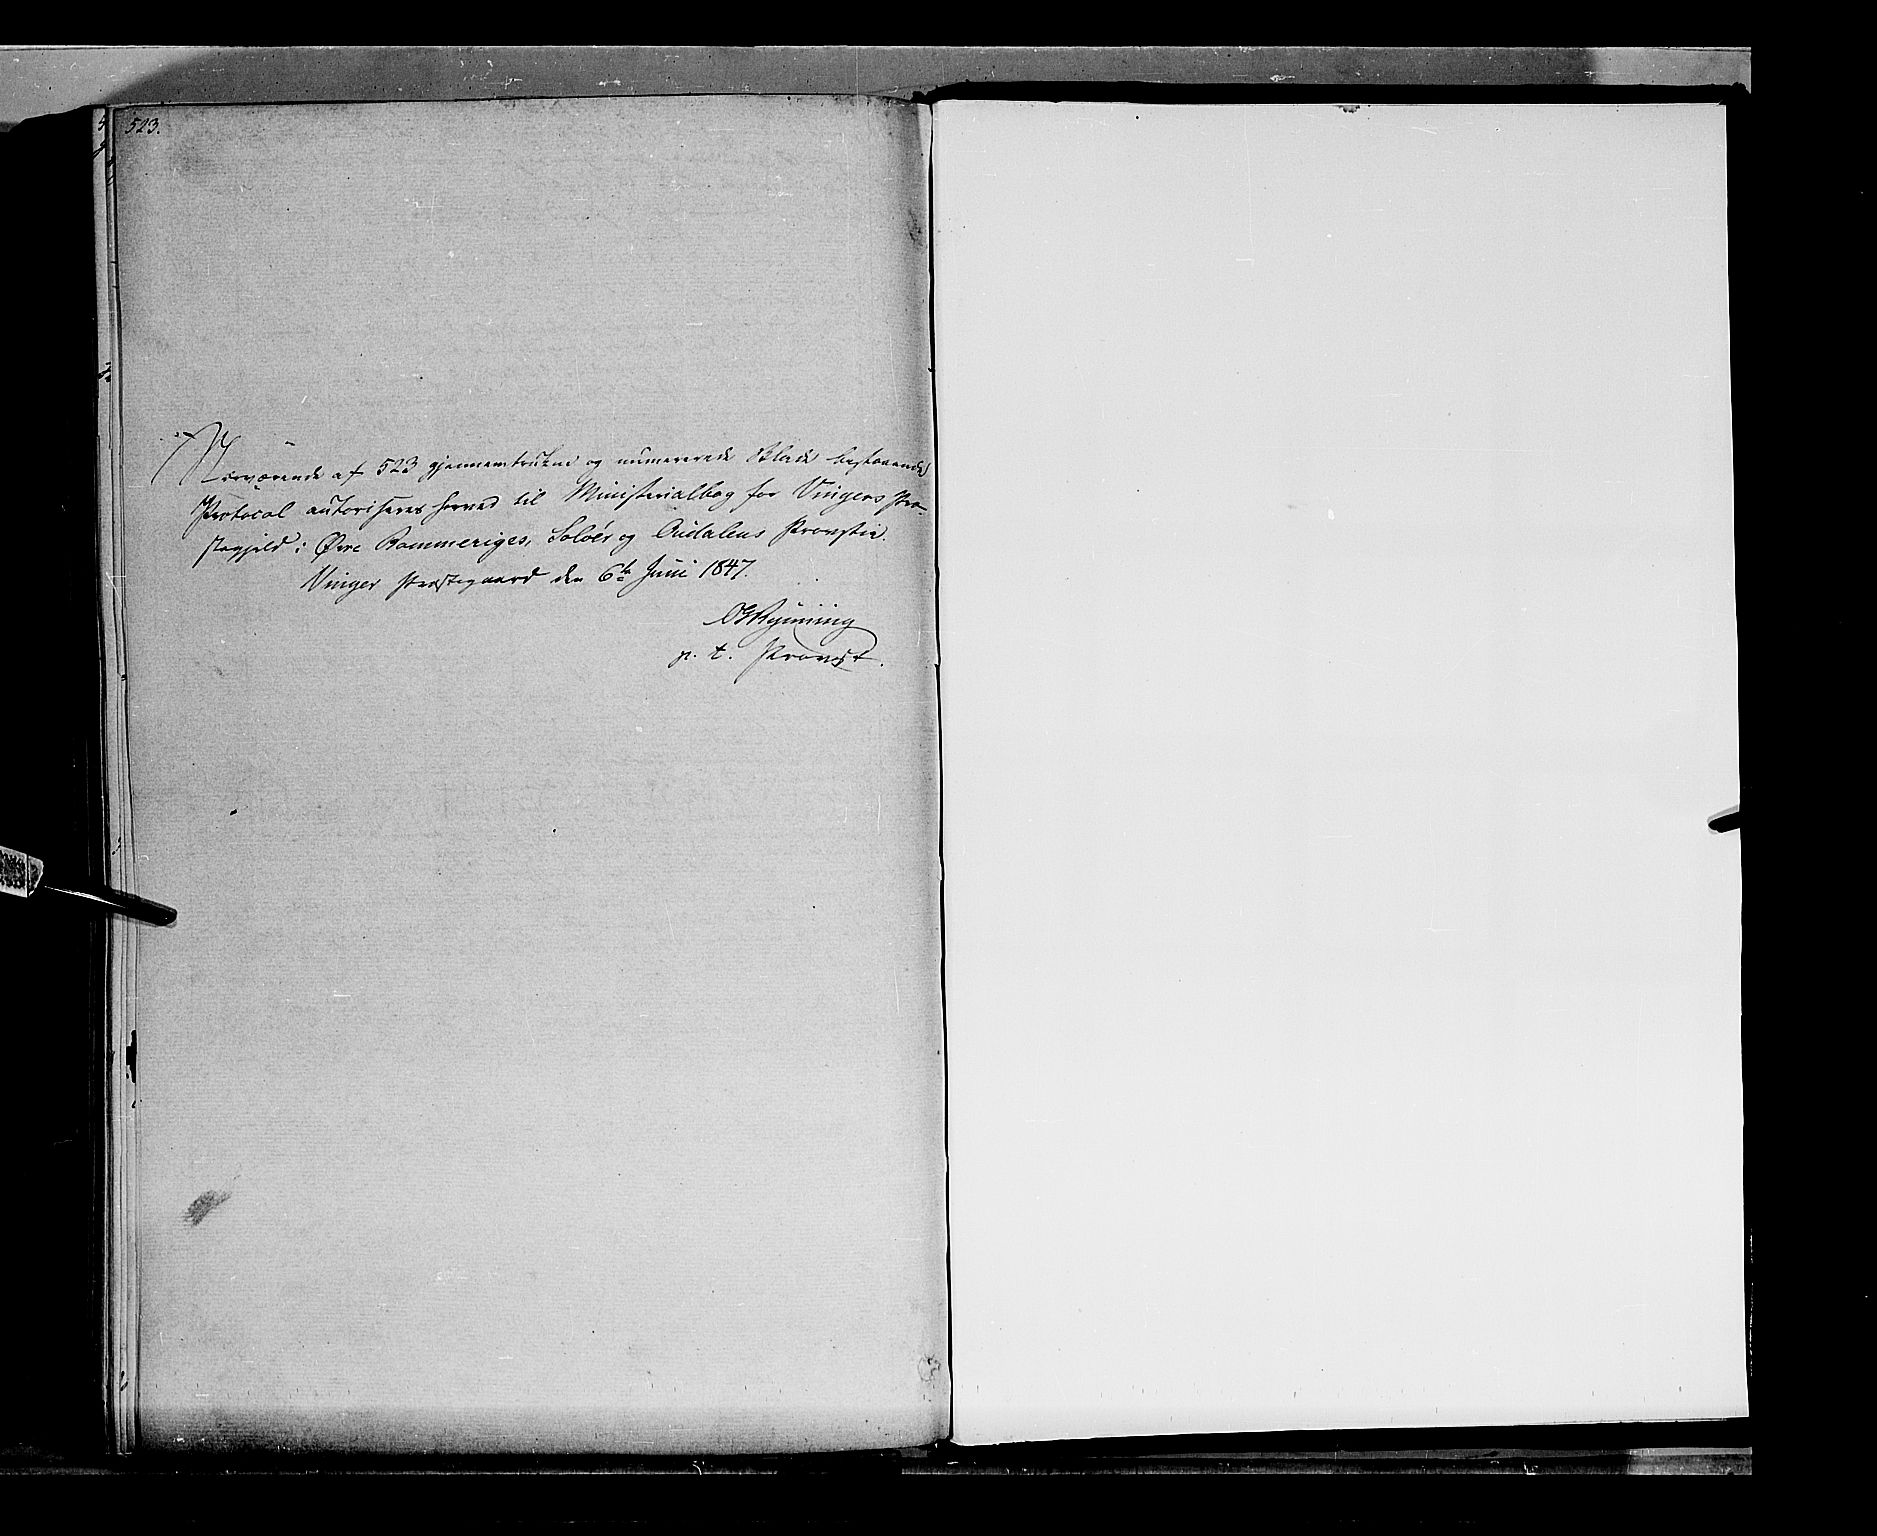 523.
Nærværende af 523 gjennemtrukne og numererede Blade bestaaende
Protocol autoriseres herved til Ministerialbog for Vingers Præ-
stegjeld i Øvre Rommeriges, Soløer og Oudalens Provstie.
Vinger Præstegaard den 6te Juni 1847.
p. t. Provst.